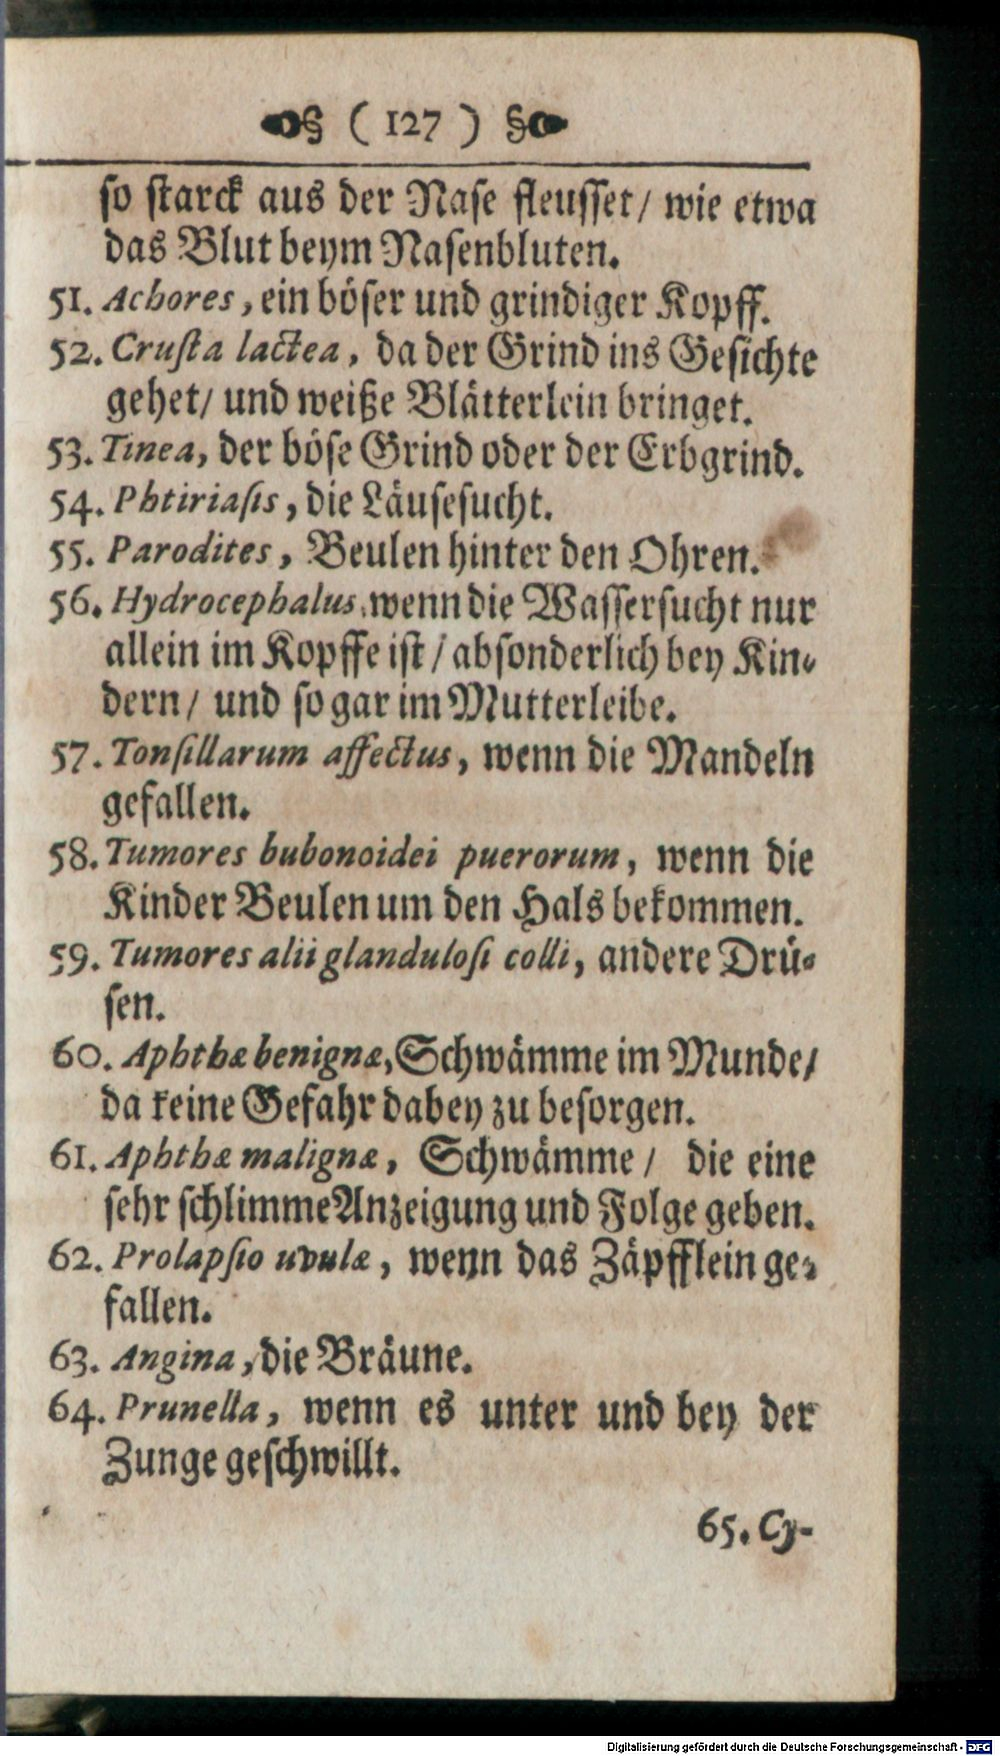 § ( 127 ) §
so starck aus der Nase fleusset/ wie etwa
das Blut beym Nasenbluten.
51. Achores, ein böser und grindiger Kopff.
52. Crusta lactea, da der Grind ins Gesichte
gehet/ und weiße Blätterlein bringet.
53. Tinea, der böse Grind oder der Erbgrind.
54. Phtiriasis, die Läusesucht.
55. Parodites, Beulen hinter den Ohren.
56. Hydrocephalus, wenn die Wassersucht nur
allein im Kopffe ist/ absonderlich bey Kin-
dern/ und so gar im Mutterleibe.
57. Tonsillarum affectus, wenn die Mandeln
gefallen.
58. Tumores bubonoidei puerorum, wenn die
Kinder Beulen um den Hals bekommen.
59. Tumores alii glandulosi colli, andere Drü-
sen.
60. Aphthæ benignæ, Schwämme im Munde/
da keine Gefahr dabey zu besorgen.
61. Aphthæ malignæ, Schwämme/ die eine
sehr schlimme Anzeigung und Folge geben.
62. Prolapsio uvulæ, wenn das Zäpfflein ge-
fallen.
63. Angina, die Bräune.
64. Prunella, wenn es unter und bey der
Zunge geschwillt.
65. Cy-
Digitalisierung gefördert durch die Deutsche Forschungsgemeinschaft - DFG